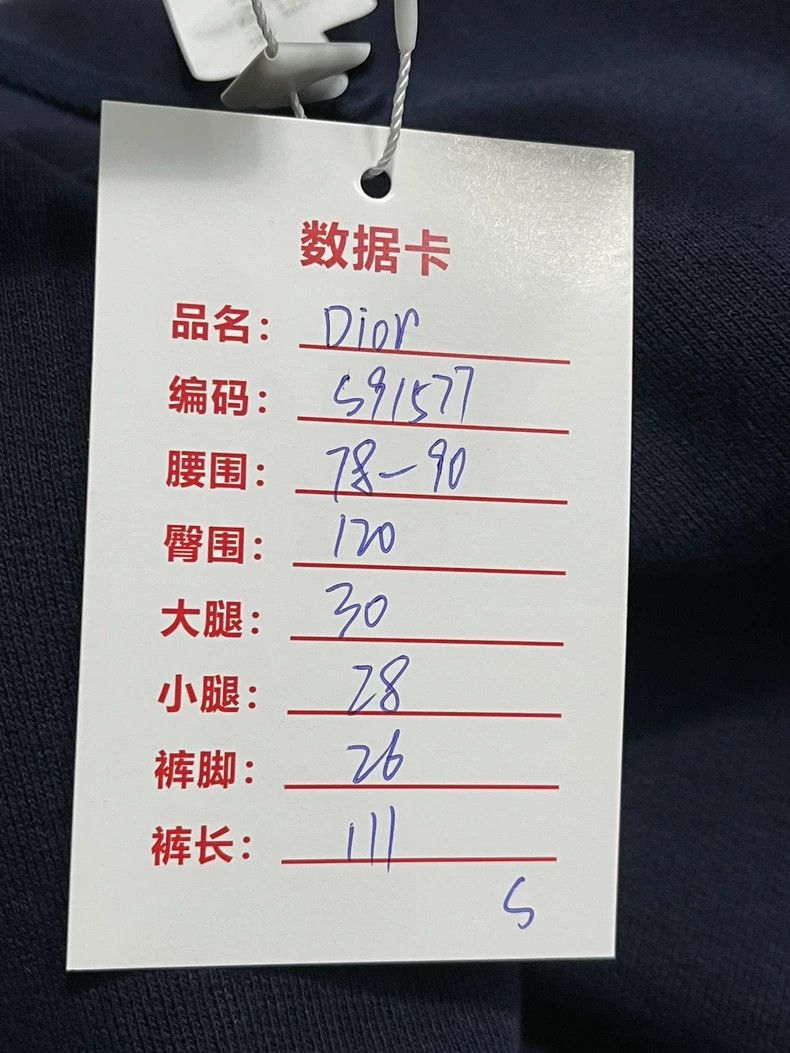 数据卡
品名: Dior
编码: S91577
腰围: 78-90
臀围: 120
大腿: 30
小腿: 28
裤脚: 26
裤长: 111
S